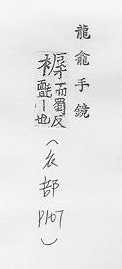 龍龕手鏡
而蜀反
氈丨也
(衣部
P107)